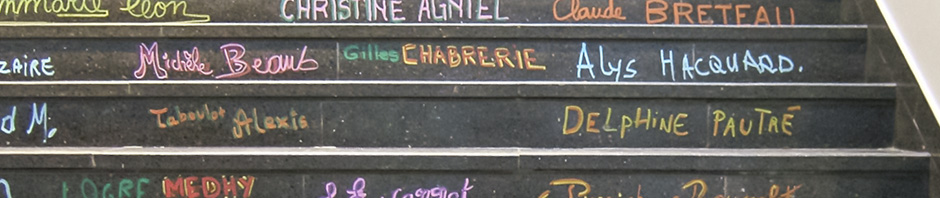 Léon CHRISTINE AGNIEL Claude BRETEAU
ZAIRE Michèle Beaut Gilles CHABRERIE Alys HACQUARD.
d M. Taboulot Alexis DELPHINE PAUTRÉ
LOGRE MEDHY